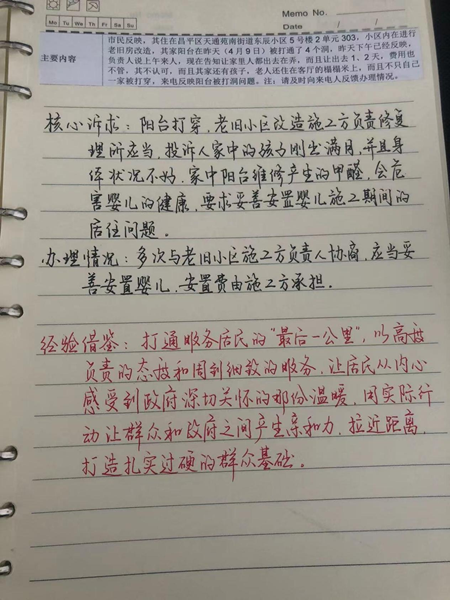 Memo No.
Mo Tu We Th Fr Sa Su
Date / /
主要内容
市民反映，其住在昌平区天通苑南街道东辰小区5号楼2单元303，小区内在进行
老旧房改造，其家阳台在昨天（4月9日）被打通了4个洞，昨天下午已经反映，
负责人说上午来人，现在告知让家里人都出去在弄，而且让出去1、2天，费用也
不管，其不认可，而且其家还有孩子，老人还住在客厅的榻榻米上，而且不只自己
一家被打穿，来电反映阳台被打洞问题。注：请及时向来电人反馈办理情况。
核心诉求：阳台打穿，老旧小区改造施工方负责修复
理所应当，投诉人家中的孩子刚出满月，并且身
体状况不好，家中阳台维修产生的甲醛，会危
害婴儿的健康，要求妥善安置婴儿施工期间的
居住问题。
办理情况：多次与老旧小区施工方负责人协商，应当妥
善安置婴儿，安置费由施工方承担。
经验借鉴：打通服务居民的“最后一公里”，以高度
负责的态度和周到细致的服务，让居民从内心
感受到政府深切关怀的那份温暖，用实际行
动让群众和政府之间产生亲和力，拉近距离，
打造扎实过硬的群众基础。